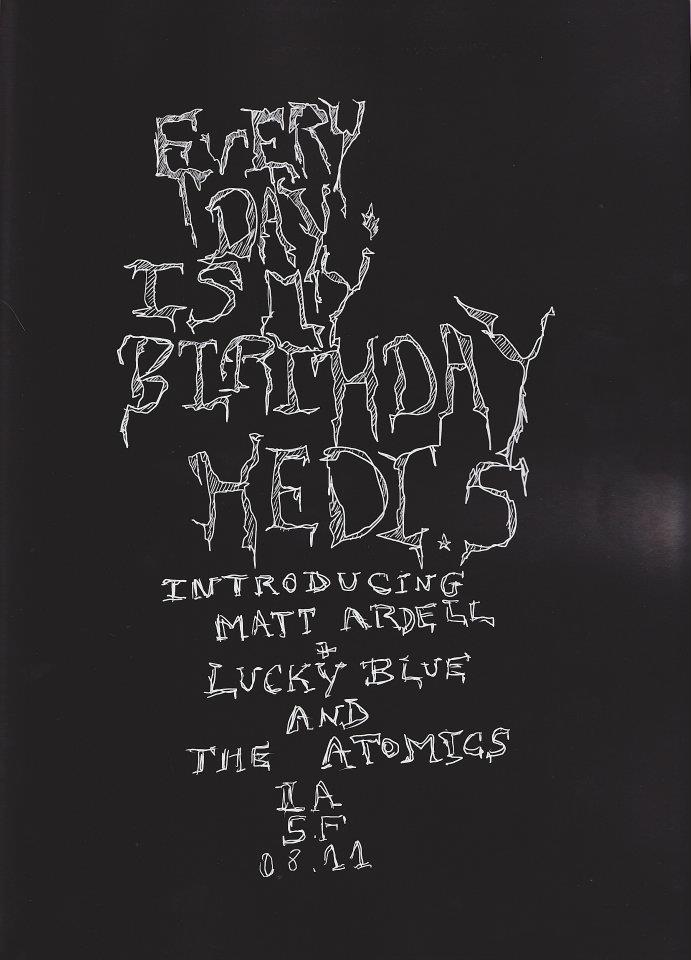 EVERY
DAY
IS MY
BIRTHDAY
HEDI.S
INTRODUCING
MATT ARDELL
+
LUCKY BLUE
AND
THE ATOMICS
LA
S.F
08.11